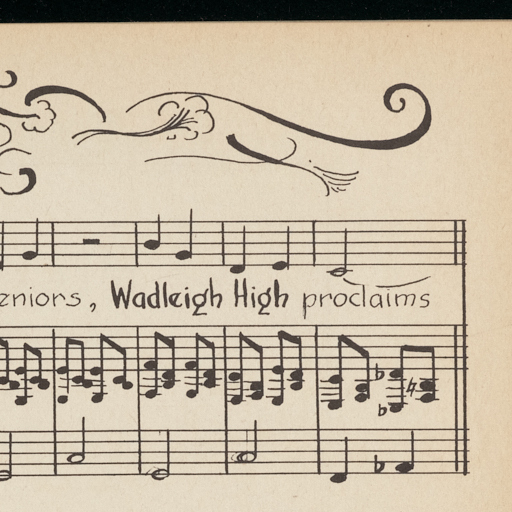 eniors, Wadleigh High proclaims